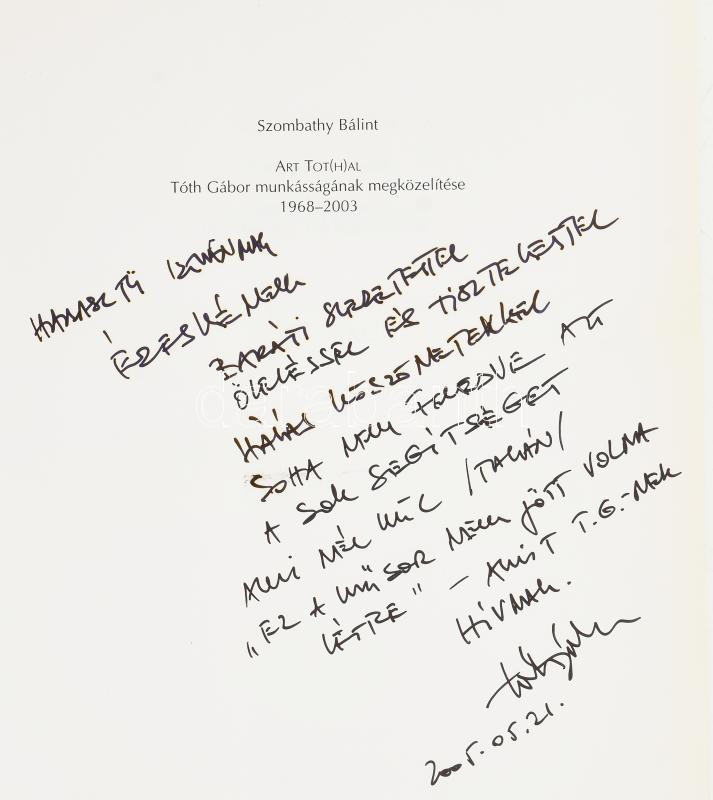 Szombathy Bálint
ART TOT(H)AL
Tóth Gábor munkásságának megközelítése
1968–2003
ISTVÁNNAK
ÉS
BARÁTI SZERETETTEL
ÖLELÉSSEL ÉS TISZTELETTEL
HÁLÁS KÖSZÖNETEKKEL
SOHA NEM FELEDVE AZT
A SOK SEGÍTSÉGET
AMI NÉLKÜL /TALÁN/
„EZ A MŰSOR NEM JÖTT VOLNA
LÉTRE" – AMIT T.G.-NEK
HÍVNAK.
2005.05.21.